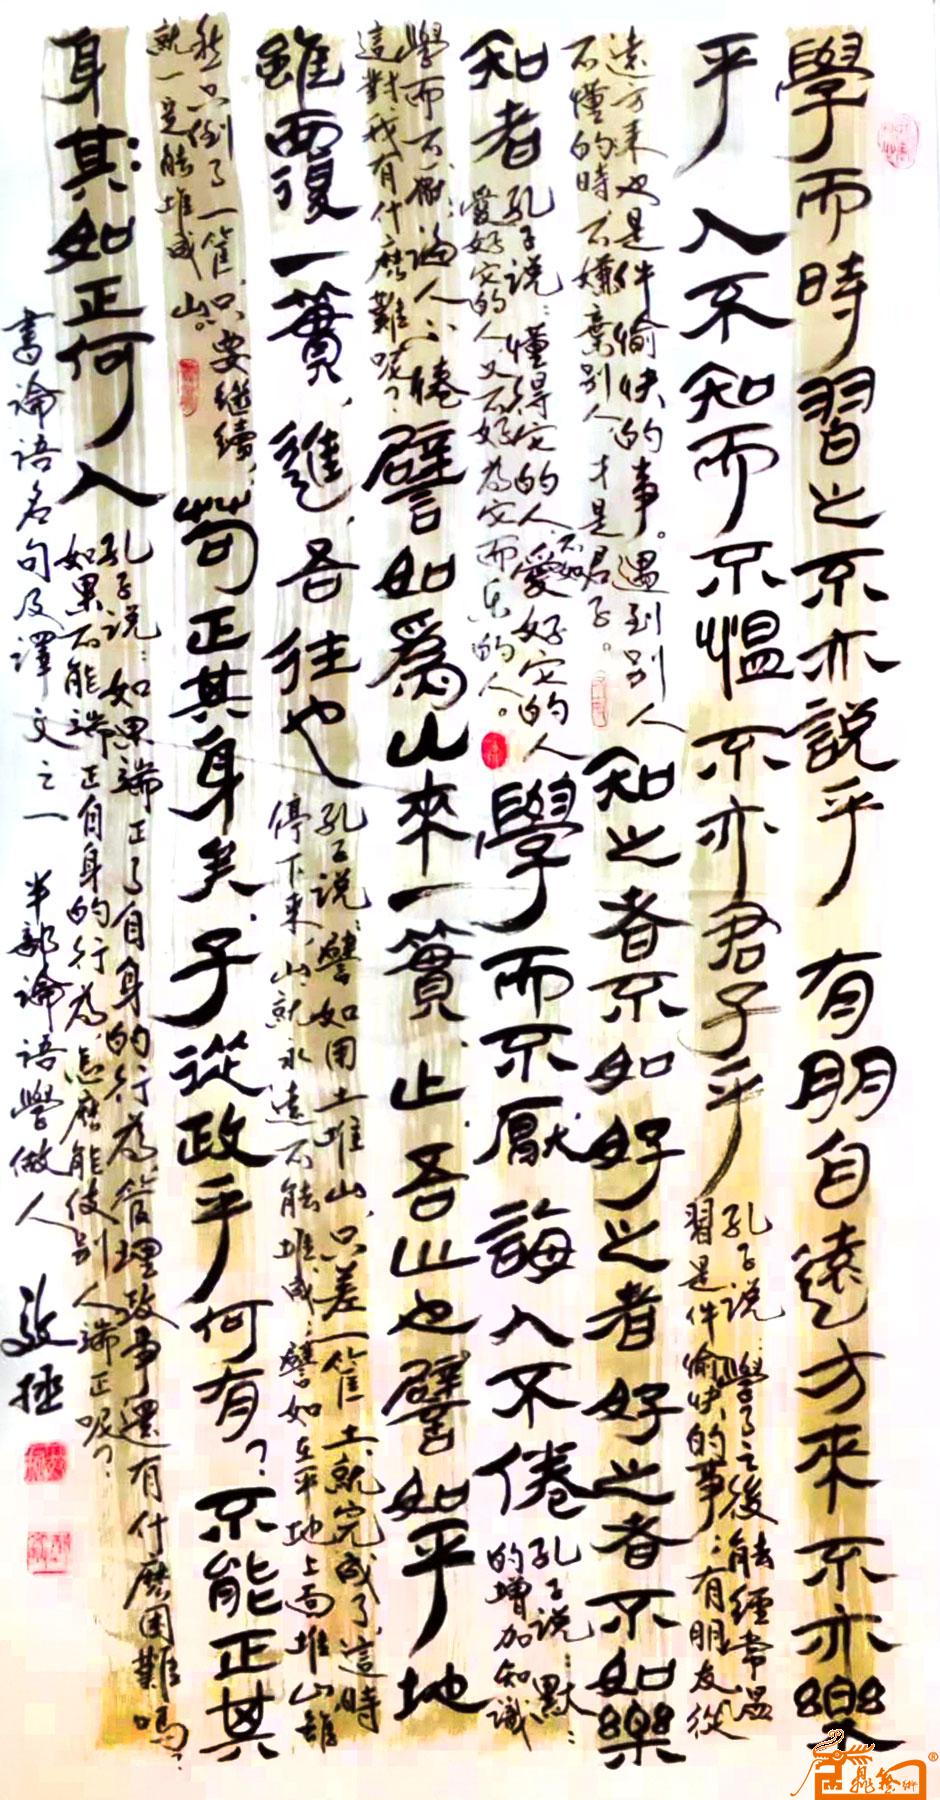 學而時習之不亦說乎 有朋自遠方來不亦樂
乎 人不知而不愠不亦君子乎
孔子说:學了之後能經常温
習是件愉快的事;有朋友從
遠方来也是件愉快的事。遇到别人
不懂的時不嫌棄别人,才是君子。
知之者不如好之者好之者不如樂
知者
孔子说:懂得它的人,不如愛好它的人
愛好它的人又不如為它而乐的人。
學而不厭 誨人不倦
孔子说:默:
的增加知識
學而不厭:誨人不倦
這對我有什麽難呢?
譬如爲山來一簣,止,吾止也譬如平地
雖覆一簣,進,吾往也
孔子说:譬如用土堆山,只差一筐土,就完成了,這時
停下来,山就永遠不能堆成;譬如在平地上面堆山雖
然只倒了一筐,只要继续,
就一定能堆成山。
苟正其身矣,子從政乎何有?不能正其
身其:如正何人
孔子说:如果端正了自身的行為,管理政事還有什麽困難嗎?
如果不能端正自身的行為,怎麽能使别人端正呢?
書論語名句及譯文之一 半部論語學做人 敬